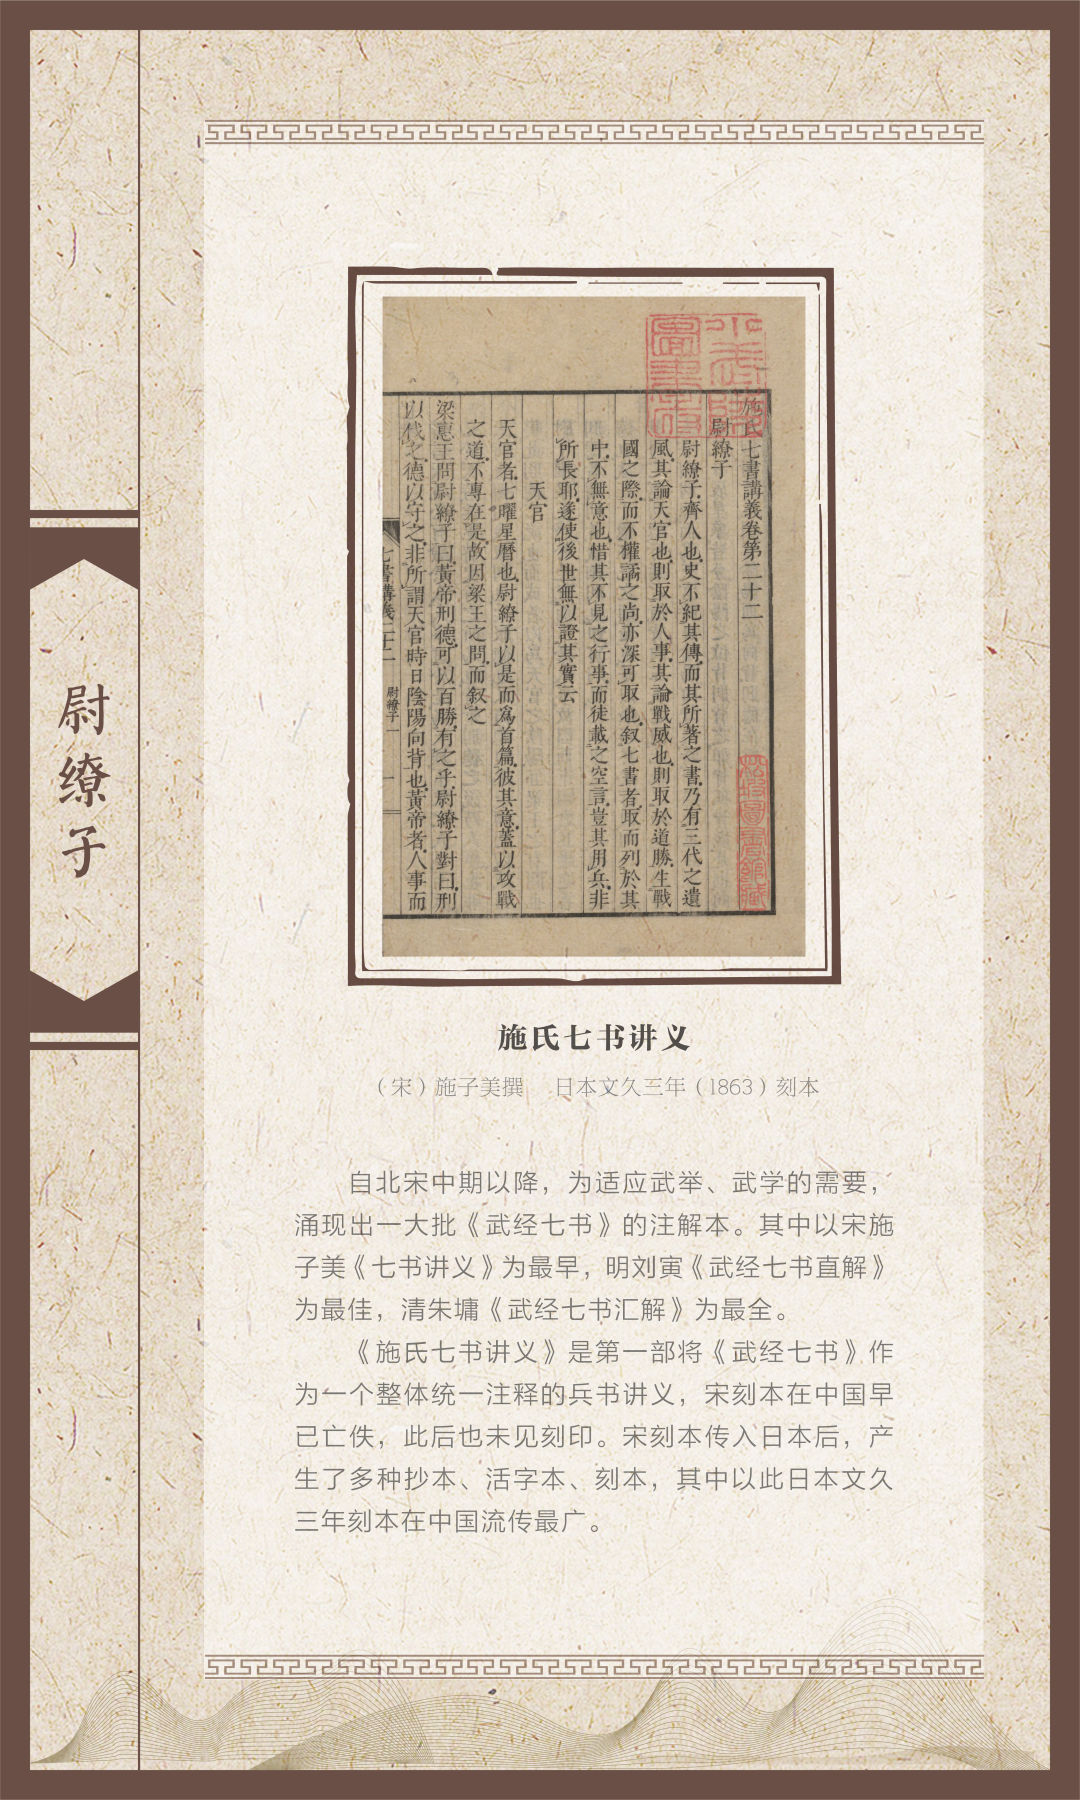 尉缭子
施氏七書講義卷第二十二
尉繚子
尉繚子齊人也史不紀其傳而其所著之書乃有三代之遺
風其論天官也則取於人事其論戰威也則取於道勝生戰
國之際而不權譎之尚亦深可取也叙七書者取而列於其
中不無意也惜其不見之行事而徒載之空言豈其用兵非
所長耶遂使後世無以證其實云
天官
天官者七曜星曆也尉繚子以是而為首篇彼其意蓋以攻戰
之道不專在是故因梁王之問而叙之
梁惠王問尉繚子曰黃帝刑德可以百勝有之乎尉繚子對曰刑
以伐之德以守之非所謂天官時日陰陽向背也黃帝者人事而
七書講義二十二 尉繚子 一
施氏七书讲义
（宋）施子美撰 日本文久三年（1863）刻本
自北宋中期以降，为适应武举、武学的需要，
涌现出一大批《武经七书》的注解本。其中以宋施
子美《七书讲义》为最早，明刘寅《武经七书直解》
为最佳，清朱墉《武经七书汇解》为最全。
《施氏七书讲义》是第一部将《武经七书》作
为一个整体统一注释的兵书讲义，宋刻本在中国早
已亡佚，此后也未见刻印。宋刻本传入日本后，产
生了多种抄本、活字本、刻本，其中以此日本文久
三年刻本在中国流传最广。